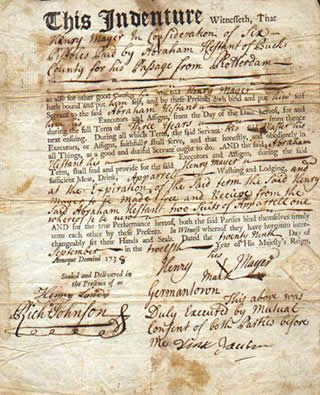 This Indenture Witnesseth, That
Henry Mayer In Consideration of Six
Paid by Abraham Hestant of Bucks
County for his Passage from Rotterdam
as also for other good Causes he the said Henry Mayer
hath bound and put him self, and by these Presents doth bind and put him self
Servant to the said Abraham Hestant
Executors and Assigns, from the Day of the Date hereof, for and
during the full Term of Three Years from thence
next ensuing. During all which Term, the said Servant his said Master his
Executors, or Assigns, faithfully shall serve, and that honestly and obediently in
all Things, as a good and dutiful Servant ought to do. AND the said Abraham
Hestant his Executors and Assigns, during the said
Term, shall find and provide for the said Henry Mayer
sufficient Meat, Drink, Apparel, Washing and Lodging, and
at the Expiration of the Said term the said Henry
Mayer to be made free and Receive from the
Said Abraham Hestant two Suits of Apparrell one
whereof to be new
AND for the true Performance hereof, both the said Parties bind themselves firmly
unto each other by these Presents. In Witness whereof they have interchangeably
set their Hands and Seals. Dated the Day of
September in the twelfth Year of His Majesty's Reign,
Annoque Domini 1738
Sealed and Delivered
in the Presence of us
Henry his Mayer
Mark
Rich Johnson
Germantown This above was
Duly Executed by Mutual
Consent of both Parties before
me